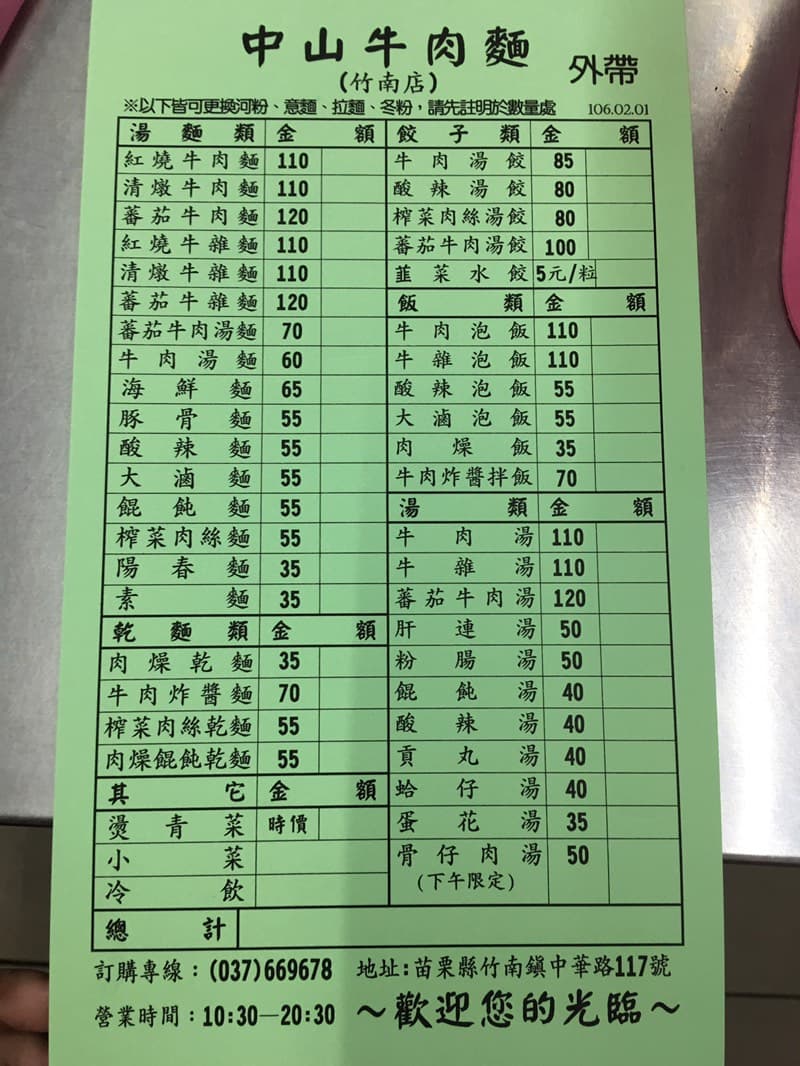 中山牛肉麵
(竹南店)
外帶
※以下皆可更換河粉、意麵、拉麵、冬粉，請先註明於數量處
106.02.01
湯麵類 金額
紅燒牛肉麵 110
清燉牛肉麵 110
蕃茄牛肉麵 120
紅燒牛雜麵 110
清燉牛雜麵 110
蕃茄牛雜麵 120
蕃茄牛肉湯麵 70
牛肉湯麵 60
海鮮麵 65
豚骨麵 55
酸辣麵 55
大滷麵 55
餛飩麵 55
榨菜肉絲麵 55
陽春麵 35
素麵 35
乾麵類 金額
肉燥乾麵 35
牛肉炸醬麵 70
榨菜肉絲乾麵 55
肉燥餛飩乾麵 55
其它 金額
燙青菜 時價
小菜
冷飲
餃子類 金額
牛肉湯餃 85
酸辣湯餃 80
榨菜肉絲湯餃 80
蕃茄牛肉湯餃 100
韮菜水餃 5元/粒
飯類 金額
牛肉泡飯 110
牛雜泡飯 110
酸辣泡飯 55
大滷泡飯 55
肉燥飯 35
牛肉炸醬拌飯 70
湯類 金額
牛肉湯 110
牛雜湯 110
蕃茄牛肉湯 120
肝連湯 50
粉腸湯 50
餛飩湯 40
酸辣湯 40
貢丸湯 40
蛤仔湯 40
蛋花湯 35
骨仔肉湯 50
(下午限定)
總計
訂購專線：(037)669678 地址：苗栗縣竹南鎮中華路117號
營業時間：10:30—20:30 ～歡迎您的光臨～